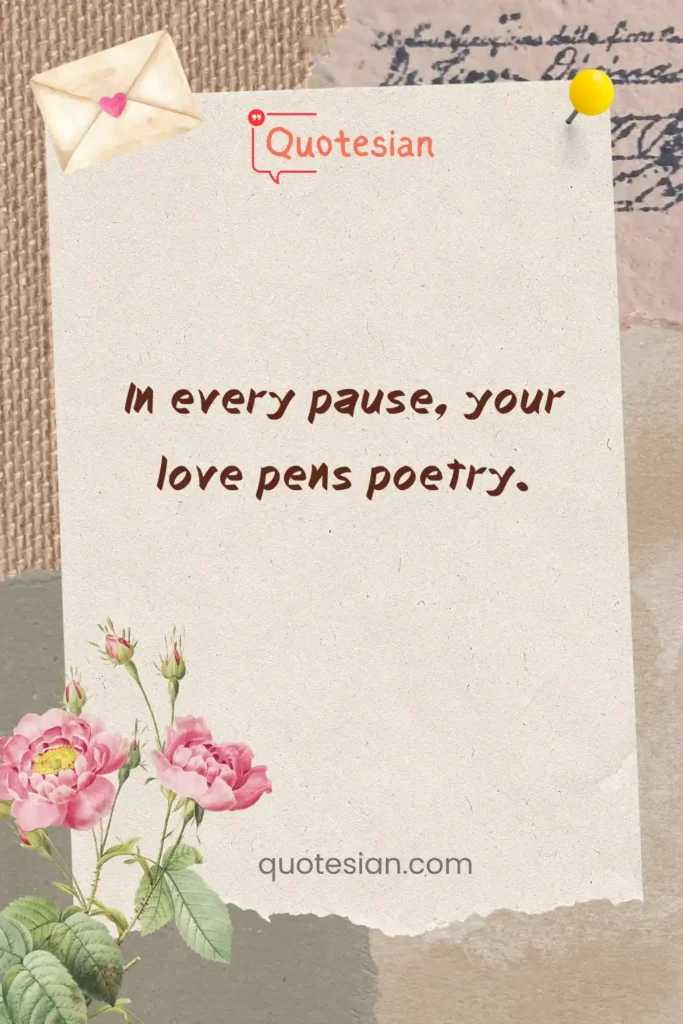 Quotesian
In every pause, your
love pens poetry.
quotesian.com